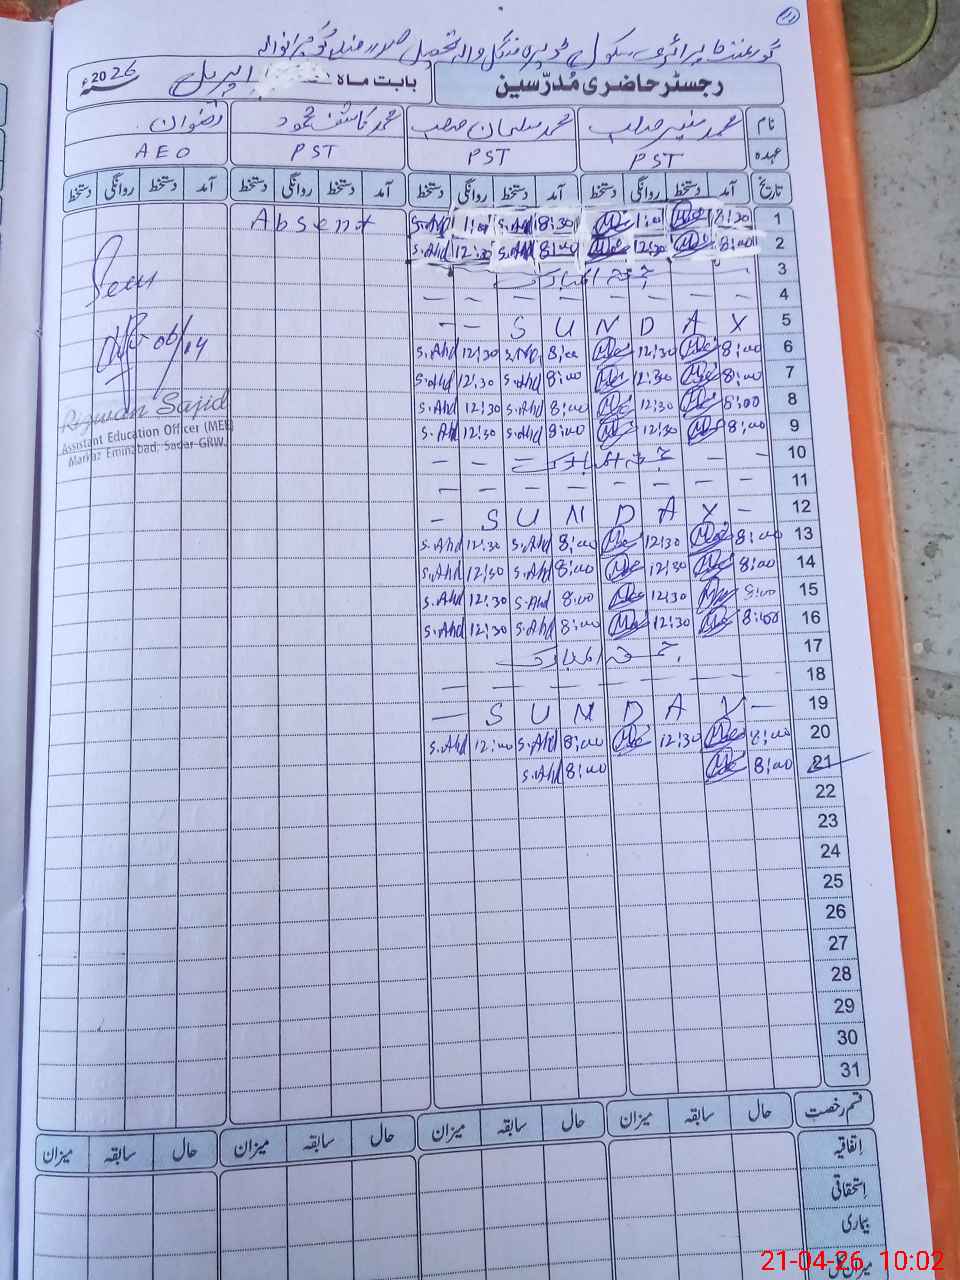 گورنمنٹ پرائمری سکول ڈیرہ منگل والہ تحصیل صدر ضلع گوجرانوالہ
رجسٹر حاضری مُدرّسین
بابت ماہ اپریل 2026ء
نام محمد منیر صاحب محمد سلیمان صاحب محمد کاشف محمود رضوان
عہدہ PST PST PST AEO
تاریخ آمد دستخط روانگی دستخط آمد دستخط روانگی دستخط آمد دستخط روانگی دستخط آمد دستخط روانگی دستخط
Absent S.Ahd 1:00 S.Ahd 8:30 1:00 8:30 1
S.Ahd 12:30 S.Ahd 8:00 12:30 8:00 2
جمعۃ المبارک 3
Seen
— — — — — — — — 4
— — S U N D A Y 5
06/04
S.Ahd 12:30 S.Ahd 8:00 12:30 8:00 6
S.Ahd 12:30 S.Ahd 8:00 12:30 8:00 7
S.Ahd 12:30 S.Ahd 8:00 12:30 8:00 8
Rizwan Sajid
Assistant Education Officer (MEE)
Markaz Eminabad, Sadar GRW.
S.Ahd 12:30 S.Ahd 8:00 12:30 8:00 9
— — جمعۃ المبارک — — 10
— — — — — — — — 11
— S U N D A Y — 12
S.Ahd 12:30 S.Ahd 8:00 12:30 8:00 13
S.Ahd 12:30 S.Ahd 8:00 12:30 8:00 14
S.Ahd 12:30 S.Ahd 8:00 12:30 8:00 15
S.Ahd 12:30 S.Ahd 8:00 12:30 8:00 16
جمعۃ المبارک 17
— — — — — — — — 18
— S U N D A Y — 19
S.Ahd 12:00 S.Ahd 8:00 12:30 8:00 20
S.Ahd 8:00 8:00 21
22
23
24
25
26
27
28
29
30
31
قسم رخصت حال سابقہ میزان حال سابقہ میزان حال سابقہ میزان حال سابقہ میزان
اِتفاقیہ
اِستحقاقی
بیماری
میزان کل
21-04-26, 10:02